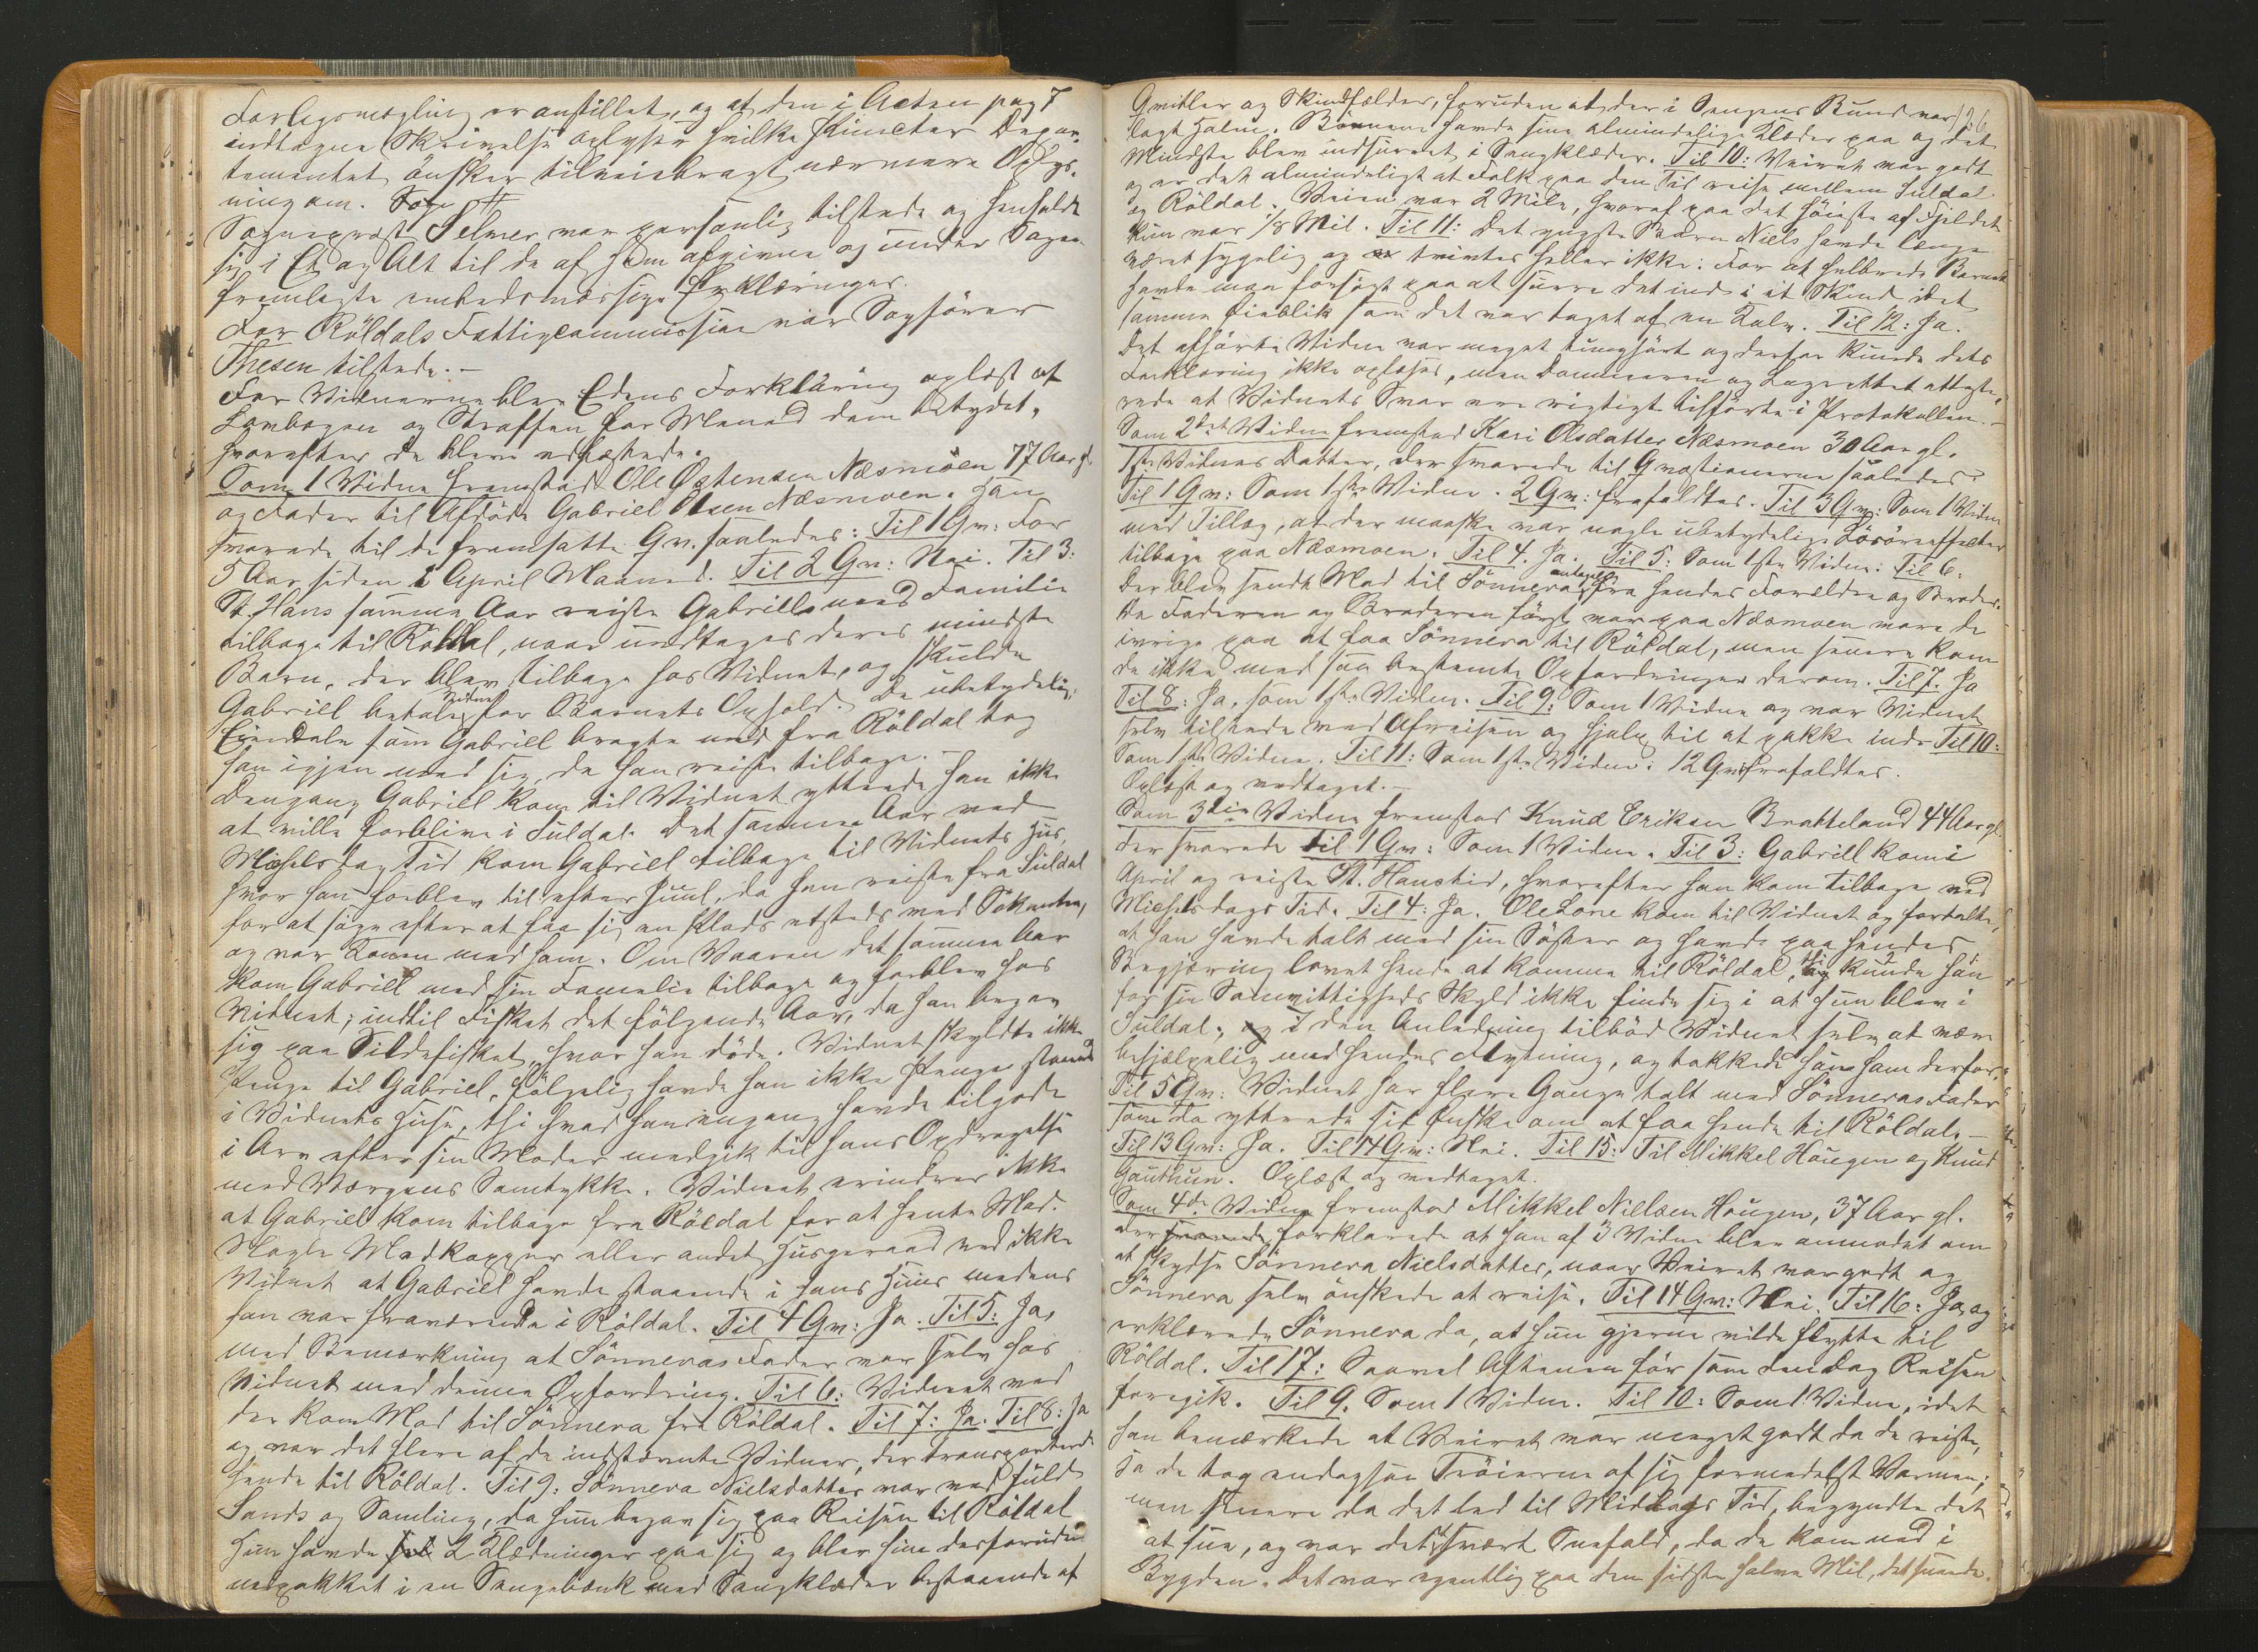 Forligsmægling er anstillet, og at den i Acten pag 7
indtagne Skrivelse oplyser hvilke Puncter Depar-
tementet ønsker tilveiebragt nærmere Oplys-
ning om.
Sognepræst Selmer var personlig tilstede og henholdt
sig i Et og Alt til de af ham afgivne og under Sagen
fremlagte embedsmæssige Erklæringer.
For Röldals Fattigcommission var Sagförer
Thesen tilstede. –
For Vidnerne blev Edens Forklaring oplæst af
Lovbogen og Straffen for Meneed dem betydet,
hvorefter de bleve edfæstede.
Som 1 Vidne fremstod Ole Østensen Næsmoen 77 Aar gl.
og Fader til Afdöde Gabriel Olsen Næsmoen. Han
svarede til de fremsatte Qv. saaledes: Til 1 Qv: For
5 Aar siden i April Maaned. Til 2 Qv: Nei. Til 3:
St. Hans samme Aar reiste Gabriel med Familie
tilbage til Röldal, naar undtages deres mindste
Barn, der blev tilbage hos Vidnet, og skulde
Gabriel betale Vidnet for Barnets Ophold. De ubetydelige
Eiendele som Gabriel bragte med fra Röldal tog
han igjen med sig, da han reiste tilbage.
Dengang Gabriel kom til Vidnet yttrede han ikke
at ville forblive i Suldal. Det samme Aar ved
Michelsdag Tid kom Gabriel tilbage til Vidnets Hus,
hvor han forblev til efter Juul, da han reiste fra Suldal
for at søge efter at faa sig en Plads etsteds ved Søkanten,
og var Konen med ham. Om Vaaren det samme Aar
kom Gabriel med sin Familie tilbage og forblev hos
Vidnet; indtil Fisket det følgende Aar, da han begav
sig paa Sildefisket, hvor han døde. Vidnet skyldte ikke
Penge til Gabriel, fölgelig havde han ikke Penge staaende
i Vidnets Huse, thi hvad han engang havde tilgode
i Arv efter sin Moder medgik til hans Opdragelse
med Værgens Samtykke. Vidnet erindrer ikke
at Gabriel kom tilbage fra Röldal for at hente Mad.
Nogle Madkopper eller andet Husgeraad ved ikke
Vidnet at Gabriel havde staaende i hans Huus medens
han var fraværende i Röldal. Til 4 Qv: Ja. Til 5: Ja,
med Bemærkning at Sönnevas Fader var selv hos
Vidnet med denne Opfordring. Til 6: Vidnet ved
der kom Mad til Sönneva fra Röldal. Til 7: Ja. Til 8: Ja
og var det flere af de indstævnte Vidner, der transporterede
hende til Röldal. Til 9: Sönneva Nielsdatter var ved fuld
Sands og Samling, da hun begav sig paa Reisen til Röldal
Hun havde 2 Klædninger paa sig og blev hun desforuden
nedpakket i en Sengebænk med Sengklæder bestaaende af
126
Qvitler og Skindfælder, foruden at der i Sengens Bund var
lagt Halm. Börnene havde sine almindelige Klæder paa og det
Mindste blev indsuret i Sengklæder. Til 10: Veiret var godt
og er det almindeligt at Folk paa den Tid reise mellem Suldal
og Röldal. Veien var 2 Mile, hvoraf paa det höieste af Fjeldet
kun var 1/8 Mil. Til 11: Det yngste Barn Niels havde længe
været sygelig og trivtes heller ikke: For at helbrede Barnet
havde man forsögt paa at surre det ind i et Skind i det
samme Öieblik som det var taget af en Kalv. Til 12: Ja.
Det afhörte Vidne var meget tunghört og derfor kunde dets
Forklaring ikke oplæses, men Dommeren og Lagrettet atteste-
rede at Vidnets Svar ere rigtigt tilförte i Protokollen. –
Som 2det Vidne fremstod Kari Olsdatter Næsmoen 30 Aar gl.
1ste Vidnes Datter, der svarede til Qvæstionerne saaledes:
Til 1 Qv: Som 1ste Vidne. 2 Qv: frafaldtes. Til 3 Qv: Som 1 Vidne
med Tillæg, at der maaske var nogle ubetydelige Lösöreeffecter
tilbage paa Næsmoen. Til 4. Ja. Til 5: Som 1ste Vidne: Til 6:
Der blev sendt Mad til Sönneva antagelig fra hendes Forældre og Broder.
Da Faderen og Broderen först var paa Næsmoen vare de
ivrige paa at faa Sönneva til Röldal, men senere kom
de ikke med saa bestemte Opfordringer derom. Til 7. Ja
Til 8: Ja, som 1ste Vidne. Til 9: Som 1 Vidne og var Vidnet
selv tilstede ved Afreisen og hjalp til at pakke ind. Til 10:
Som 1ste Vidne. Til 11: Som 1ste Vidne: 12 Qv: frafaldtes.
Oplæst og vedtaget. –
Som 3die Vidne fremstod Knud Eriksen Bratteland 44 Aar gl.
der svarede til 1 Qv: Som 1 Vidne. Til 3: Gabriel kom i
April og reiste St. Hanstid, hvorefter han kom tilbage ved
Michelsdags Tid. Til 4: Ja. Ole Lone kom til Vidnet og fortalte,
at han havde talt med sin Söster og havde paa hendes
Begjæring lovet hende at komme til Röldal, thi kunde han
for sin Samvittigheds Skyld ikke finde sig i at hun blev i
Suldal; I den Anledning tilböd Vidnet selv at være
behjælpelig med hendes Flytning, og takkede han ham derfor.
Til 5 Qv: Vidnet har flere Gange talt med Sönnevas Fader
som da yttrede sit Ønske om at faa hende til Röldal. –
Til 13 Qv: Ja. Til 14 Qv: Nei. Til 15: Til Mikkel Haugen og Knud
Gauthun. Oplæst og vedtaget.
Som 4de Vidne fremstod Mikkel Nielsen Haugen, 37 Aar gl.
der forklarede at han af 3 Vidne blev anmodet om
at skydse Sönneva Nielsdatter, naar Veiret var godt og
Sönneva selv önskede at reise. Til 14 Qv: Nei. Til 16: Ja, og
erklærede Sönneva da, at hun gjerne vilde flytte til
Röldal. Til 17: Saavel Aftenen för som den Dag Reisen
foregik. Til 9. Som 1 Vidne. Til 10: Som 1 Vidne, idet
han bemærkede at Veiret var meget godt da de reiste,
ja de tog endogsaa Tröierne af sig formedelst Varmen;
men senere da det led til Middags Tid, begyndte det
at snee, og var det svært Snefald, da de kom ned i
Bygden. Det var egentlig paa den sidste halve Mil, det sneede.